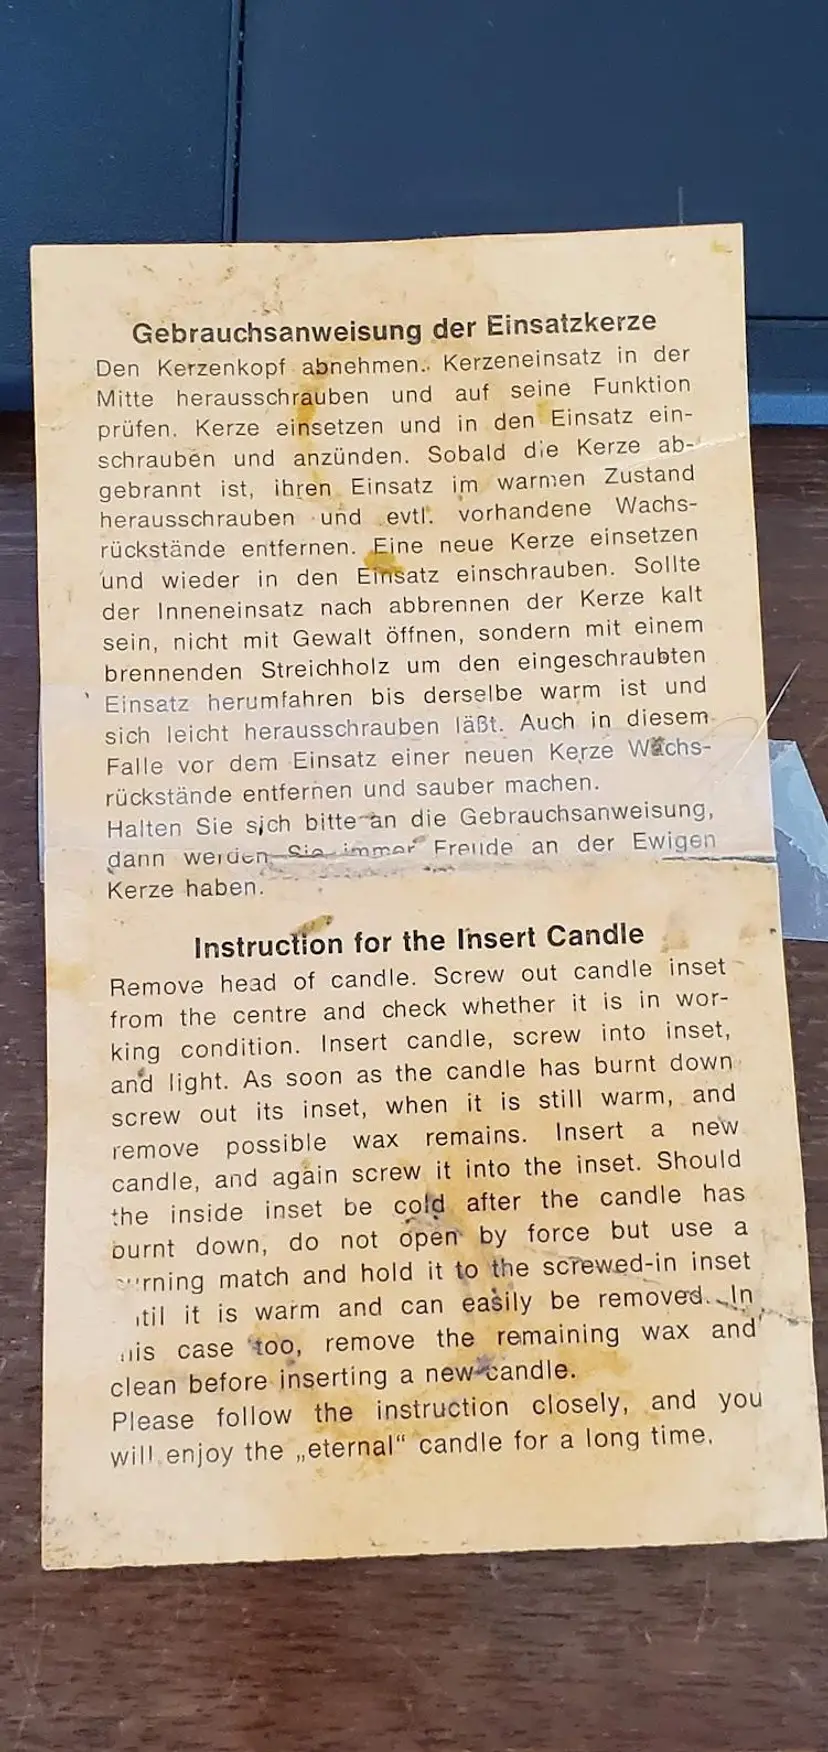 Gebrauchsanweisung der Einsatzkerze
Den Kerzenkopf abnehmen. Kerzeneinsatz in der
Mitte herausschrauben und auf seine Funktion
prüfen. Kerze einsetzen und in den Einsatz ein-
schrauben und anzünden. Sobald die Kerze ab-
gebrannt ist, ihren Einsatz im warmen Zustand
herausschrauben und evtl. vorhandene Wachs-
rückstände entfernen. Eine neue Kerze einsetzen
und wieder in den Einsatz einschrauben. Sollte
der Inneneinsatz nach abbrennen der Kerze kalt
sein, nicht mit Gewalt öffnen, sondern mit einem
brennenden Streichholz um den eingeschraubten
Einsatz herumfahren bis derselbe warm ist und
sich leicht herausschrauben läßt. Auch in diesem
Falle vor dem Einsatz einer neuen Kerze Wachs-
rückstände entfernen und sauber machen.
Halten Sie sich bitte an die Gebrauchsanweisung,
dann werden Sie immer Freude an der Ewigen
Kerze haben.
Instruction for the Insert Candle
Remove head of candle. Screw out candle inset
from the centre and check whether it is in wor-
king condition. Insert candle, screw into inset,
and light. As soon as the candle has burnt down
screw out its inset, when it is still warm, and
remove possible wax remains. Insert a new
candle, and again screw it into the inset. Should
the inside inset be cold after the candle has
burnt down, do not open by force but use a
rning match and hold it to the screwed-in inset
til it is warm and can easily be removed. In
is case too, remove the remaining wax and
clean before inserting a new candle.
Please follow the instruction closely, and you
will enjoy the „eternal“ candle for a long time.